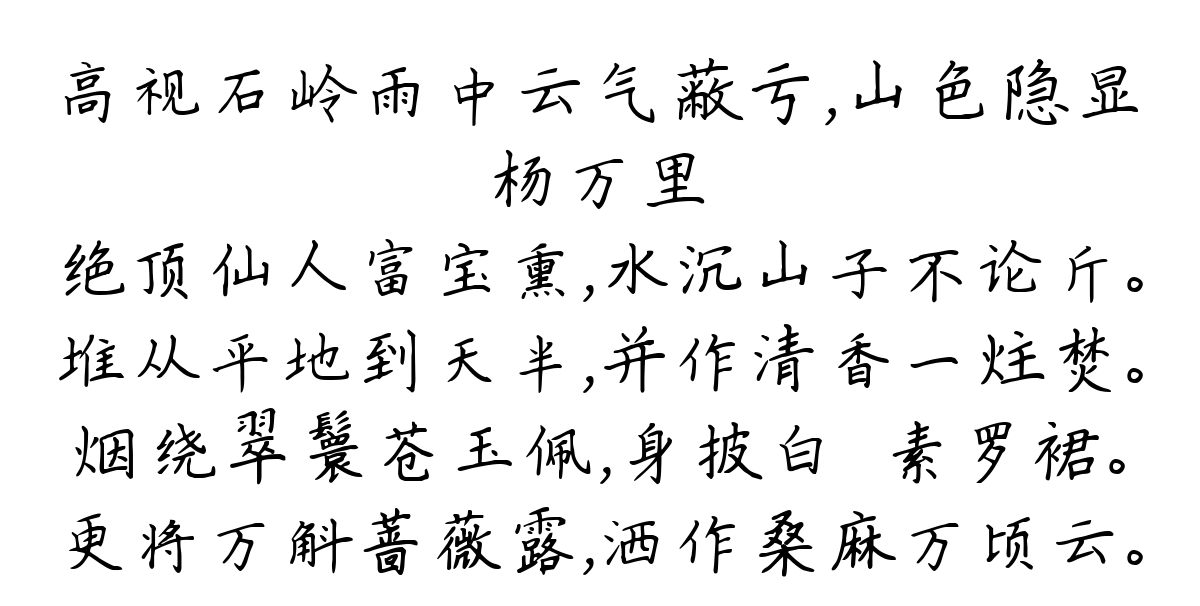 高视石岭雨中云气蔽亏,山色隐显
杨万里
绝顶仙人富宝熏,水沉山子不论斤。
堆从平地到天半,并作清香一炷焚。
烟绕翠鬟苍玉佩,身披白 素罗裙。
更将万斛蔷薇露,洒作桑麻万顷云。